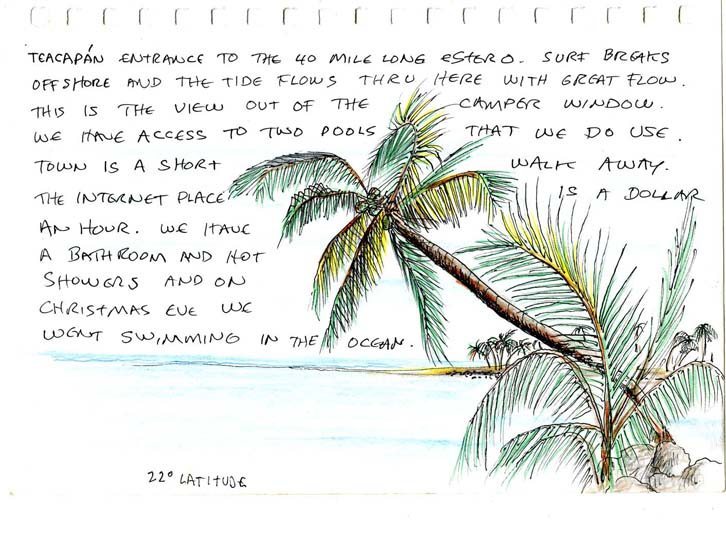 TEACAPÁN ENTRANCE TO THE 40 MILE LONG ESTERO. SURF BREAKS
OFFSHORE AND THE TIDE FLOWS THRU HERE WITH GREAT FLOW.
THIS IS THE VIEW OUT OF THE CAMPER WINDOW.
WE HAVE ACCESS TO TWO POOLS THAT WE DO USE.
TOWN IS A SHORT WALK AWAY.
THE INTERNET PLACE IS A DOLLAR
AN HOUR. WE HAVE
A BATHROOM AND HOT
SHOWERS AND ON
CHRISTMAS EVE WE
WENT SWIMMING IN THE OCEAN.
22° LATITUDE